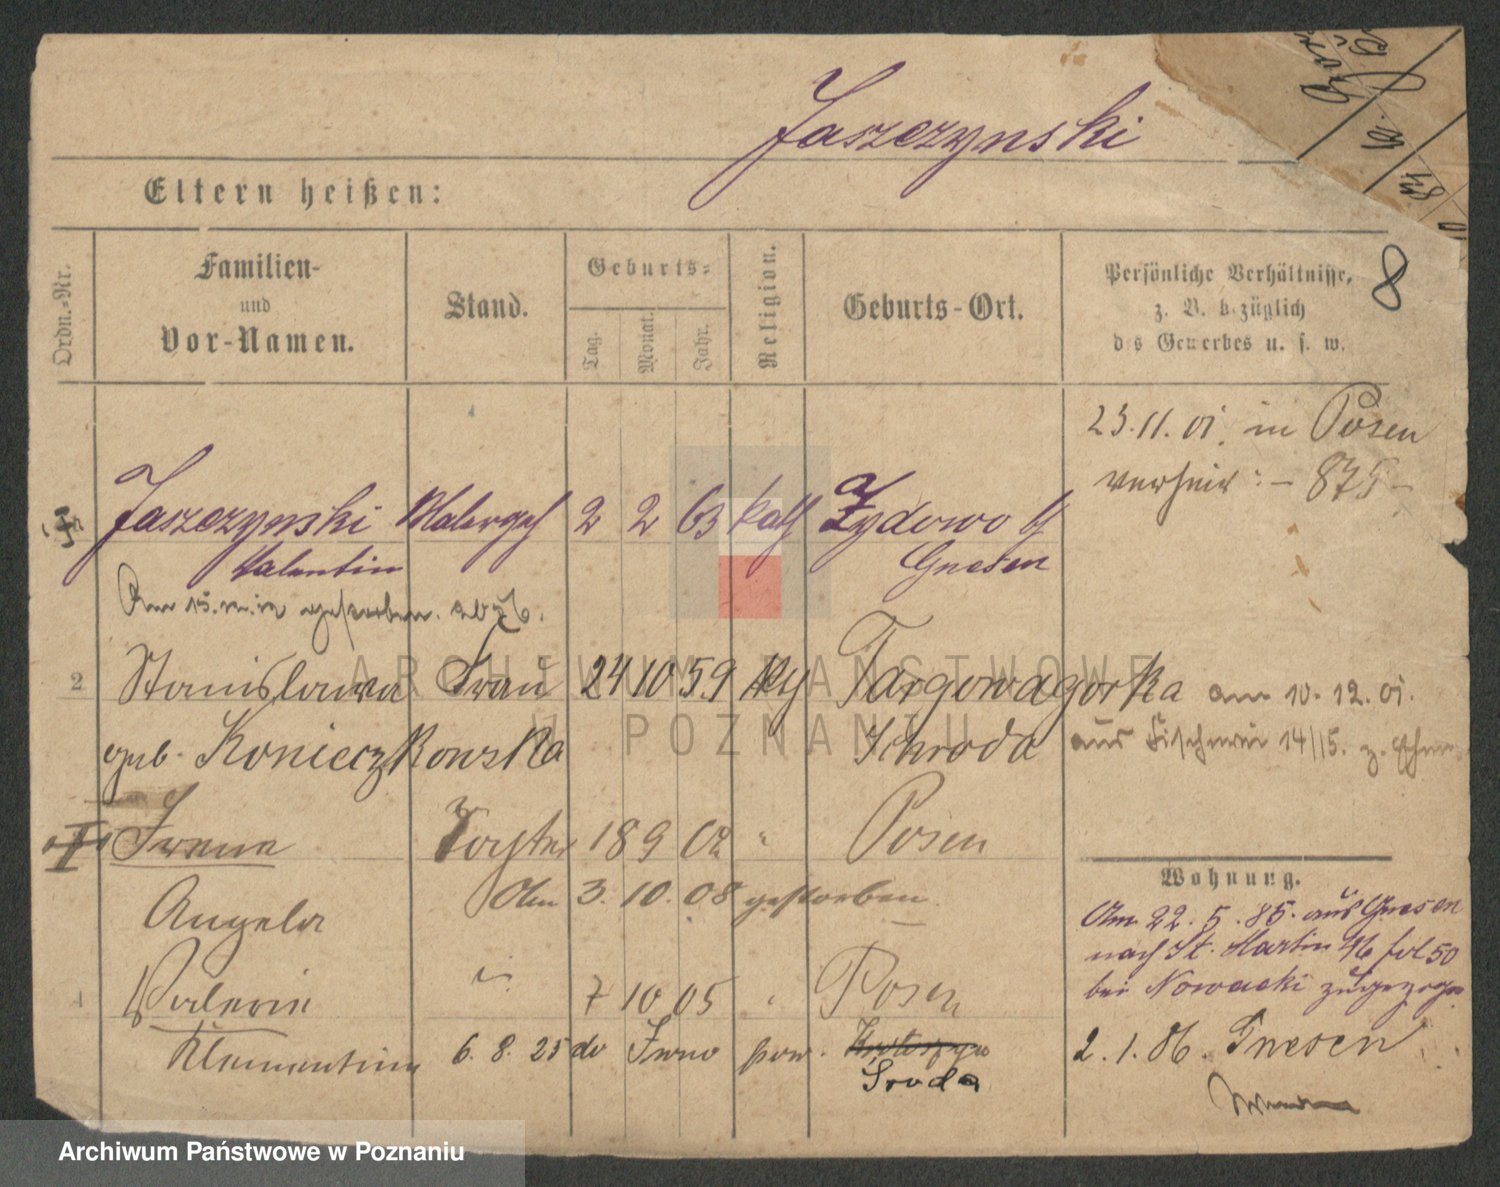 Jaszczynski
Eltern heißen:
Ordn.-Nr.
Familien-
und
Vor-Namen.
Stand.
Geburts-
Tag.
Monat.
Jahr.
Religion.
Geburts-Ort.
Persönliche Verhältnisse,
z. B. bezüglich
des Gewerbes u. s. w.
8
23.11.01. in Posen
verheir: - 875 -
Jaszczynski Malergeh 2 2 63 kath Zydowo
Valentin Gnesen
Am 15. gestorben.
2 Stanislawa Frau 24 10 59 Targowagorka am 10. 12. 01.
geb. Konieczkowska Schroda aus 14/15.
Irene Tochter 18 9 02 " Posen
Am 3. 10. 08 gestorben.
Angela
4 Valerie 7 10 05 Posen
Klementine 6. 8. 25 do pow.
Środa
Wohnung.
Am 22. 5. 85. aus Gnesen
nach St. Martin 46 50
bei Nowacki zugezogen
2. 1. 86. Gnesen
ARCHIWUM PAŃSTWOWE
W POZNANIU
Archiwum Państwowe w Poznaniu